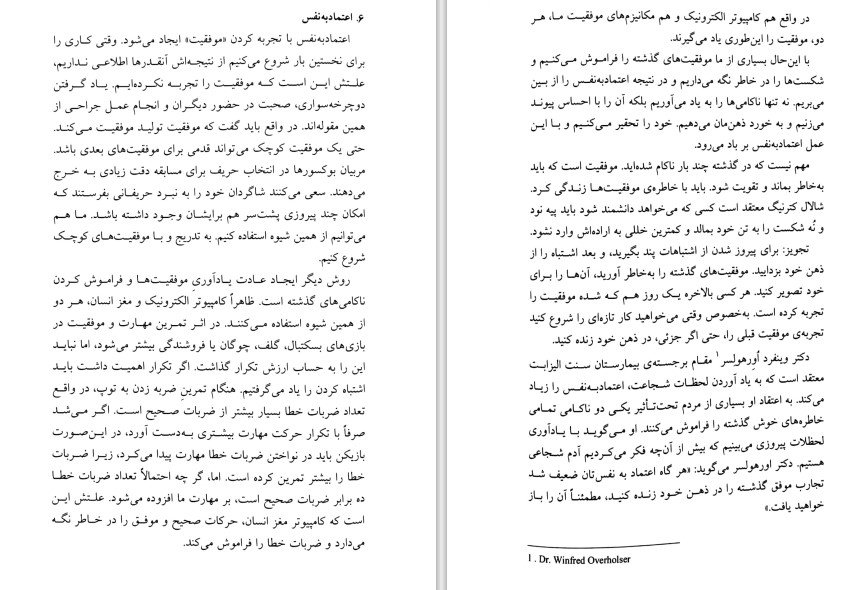 ۶. اعتمادبه‌نفس
اعتمادبه‌نفس با تجربه کردن «موفقیت» ایجاد می‌شود. وقتی کاری را
برای نخستین بار شروع می‌کنیم از نتیجه‌اش آنقدرها اطلاعی نداریم،
علتش این است که موفقیت را تجربه نکرده‌ایم. یاد گرفتن
دوچرخه‌سواری، صحبت در حضور دیگران و انجام عمل جراحی از
همین مقوله‌اند. در واقع باید گفت که موفقیت تولید موفقیت می‌کند.
حتی یک موفقیت کوچک می‌تواند قدمی برای موفقیت‌های بعدی باشد.
مربیان بوکسورها در انتخاب حریف برای مسابقه دقت زیادی به خرج
می‌دهند. سعی می‌کنند شاگردان خود را به نبرد حریفانی بفرستند که
امکان چند پیروزی پشت‌سر هم برایشان وجود داشته باشد. ما هم
می‌توانیم از همین شیوه استفاده کنیم. به تدریج و با موفقیت‌های کوچک
شروع کنیم.
روش دیگر ایجاد عادت یادآوریِ موفقیت‌ها و فراموش کردن
ناکامی‌های گذشته است. ظاهراً کامپیوتر الکترونیک و مغز انسان، هر دو
از همین شیوه استفاده می‌کنند. در اثر تمرین مهارت و موفقیت در
بازی‌های بسکتبال، گلف، چوگان یا فروشندگی بیشتر می‌شود، اما نباید
این را به حساب ارزش تکرار گذاشت. اگر تکرار اهمیت داشت باید
اشتباه کردن را یاد می‌گرفتیم. هنگام تمرینِ ضربه زدن به توپ، در واقع
تعداد ضربات خطا بسیار بیشتر از ضربات صحیح است. اگر می‌شد
صرفاً با تکرار حرکت مهارت بیشتری به‌دست آورد، در این‌صورت
بازیکن باید در نواختن ضربات خطا مهارت پیدا می‌کرد، زیرا ضربات
خطا را بیشتر تمرین کرده است. اما، گر چه احتمالاً تعداد ضربات خطا
ده برابر ضربات صحیح است، بر مهارت ما افزوده می‌شود. علتش این
است که کامپیوتر مغز انسان، حرکات صحیح و موفق را در خاطر نگه
می‌دارد و ضربات خطا را فراموش می‌کند.
در واقع هم کامپیوتر الکترونیک و هم مکانیزم‌های موفقیت ما، هر
دو، موفقیت را این‌طوری یاد می‌گیرند.
با این‌حال بسیاری از ما موفقیت‌های گذشته را فراموش می‌کنیم و
شکست‌ها را در خاطر نگه می‌داریم و در نتیجه اعتمادبه‌نفس را از بین
می‌بریم. نه تنها ناکامی‌ها را به یاد می‌آوریم بلکه آن را با احساس پیوند
می‌زنیم و به خورد ذهن‌مان می‌دهیم. خود را تحقیر می‌کنیم و با این
عمل اعتمادبه‌نفس بر باد می‌رود.
مهم نیست که در گذشته چند بار ناکام شده‌اید. موفقیت است که باید
به‌خاطر بماند و تقویت شود. باید با خاطره‌ی موفقیت‌ها زندگی کرد.
شالال کترنیگ معتقد است کسی که می‌خواهد دانشمند شود باید پیه نود
و نُه شکست را به تن خود بمالد و کمترین خللی به اراده‌اش وارد نشود.
تجویز: برای پیروز شدن از اشتباهات پند بگیرید، و بعد اشتباه را از
ذهن خود بزدایید. موفقیت‌های گذشته را به‌خاطر آورید، آن‌ها را برای
خود تصویر کنید. هر کسی بالاخره یک روز هم که شده موفقیت را
تجربه کرده است. به‌خصوص وقتی می‌خواهید کار تازه‌ای را شروع کنید
تجربه‌ی موفقیت قبلی را، حتی اگر جزئی، در ذهن خود زنده کنید.
دکتر وینفرد اورهولسر۱ مقام برجسته‌ی بیمارستان سنت الیزابت
معتقد است که به یاد آوردن لحظات شجاعت، اعتمادبه‌نفس را زیاد
می‌کند. به اعتقاد او بسیاری از مردم تحت‌تأثیر یکی دو ناکامی تمامی
خاطره‌های خوش گذشته را فراموش می‌کنند. او می‌گوید با یادآوری
لحظات پیروزی می‌بینیم که بیش از آن‌چه فکر می‌کردیم آدم شجاعی
هستیم. دکتر اورهولسر می‌گوید: «هر گاه اعتماد به نفس‌تان ضعیف شد
تجارب موفق گذشته را در ذهن خود زنده کنید، مطمئناً آن را باز
خواهید یافت.»
1 . Dr. Winfred Overholser